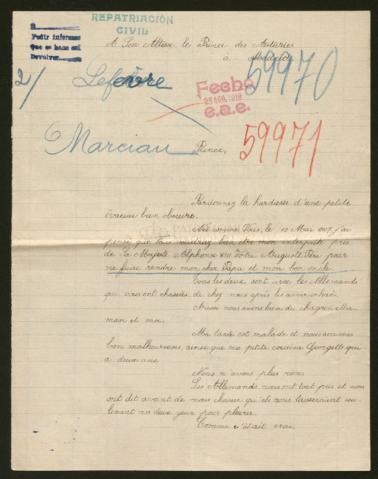 REPATRIACIÓN
CIVIL
Pedir informes
que se hace así
A Son Altesse le Prince des Asturies
à Madrid
2/
Lefèvre
59970
Fecha
25 ABR. 1918
e.a.e.
Marciau
Prince,
59971
Pardonnez la hardiesse d'une petite
bien obscure.
le 10 Mai 1907, j'ai
pensé que vous voudrez bien être mon interprète près
de Sa Majesté Alphonse XIII votre Auguste Père pour
me faire rendre mon cher Papa et mon bon oncle
Tous les deux sont avec les Allemands
qui nous ont chassées de chez nous après les avoir
Aussi nous avons bien du chagrin
man et moi.
Ma tante est malade et nous sommes
bien malheureuses, ainsi que ma petite cousine Georgette qui
a deux ans.
Nous n'avons plus rien.
Les Allemands nous ont tout pris et nous
ont dit avant de nous chasser qu'ils nous laisseraient seu-
lement nos deux yeux pour pleurer.
Comme c'était vrai.